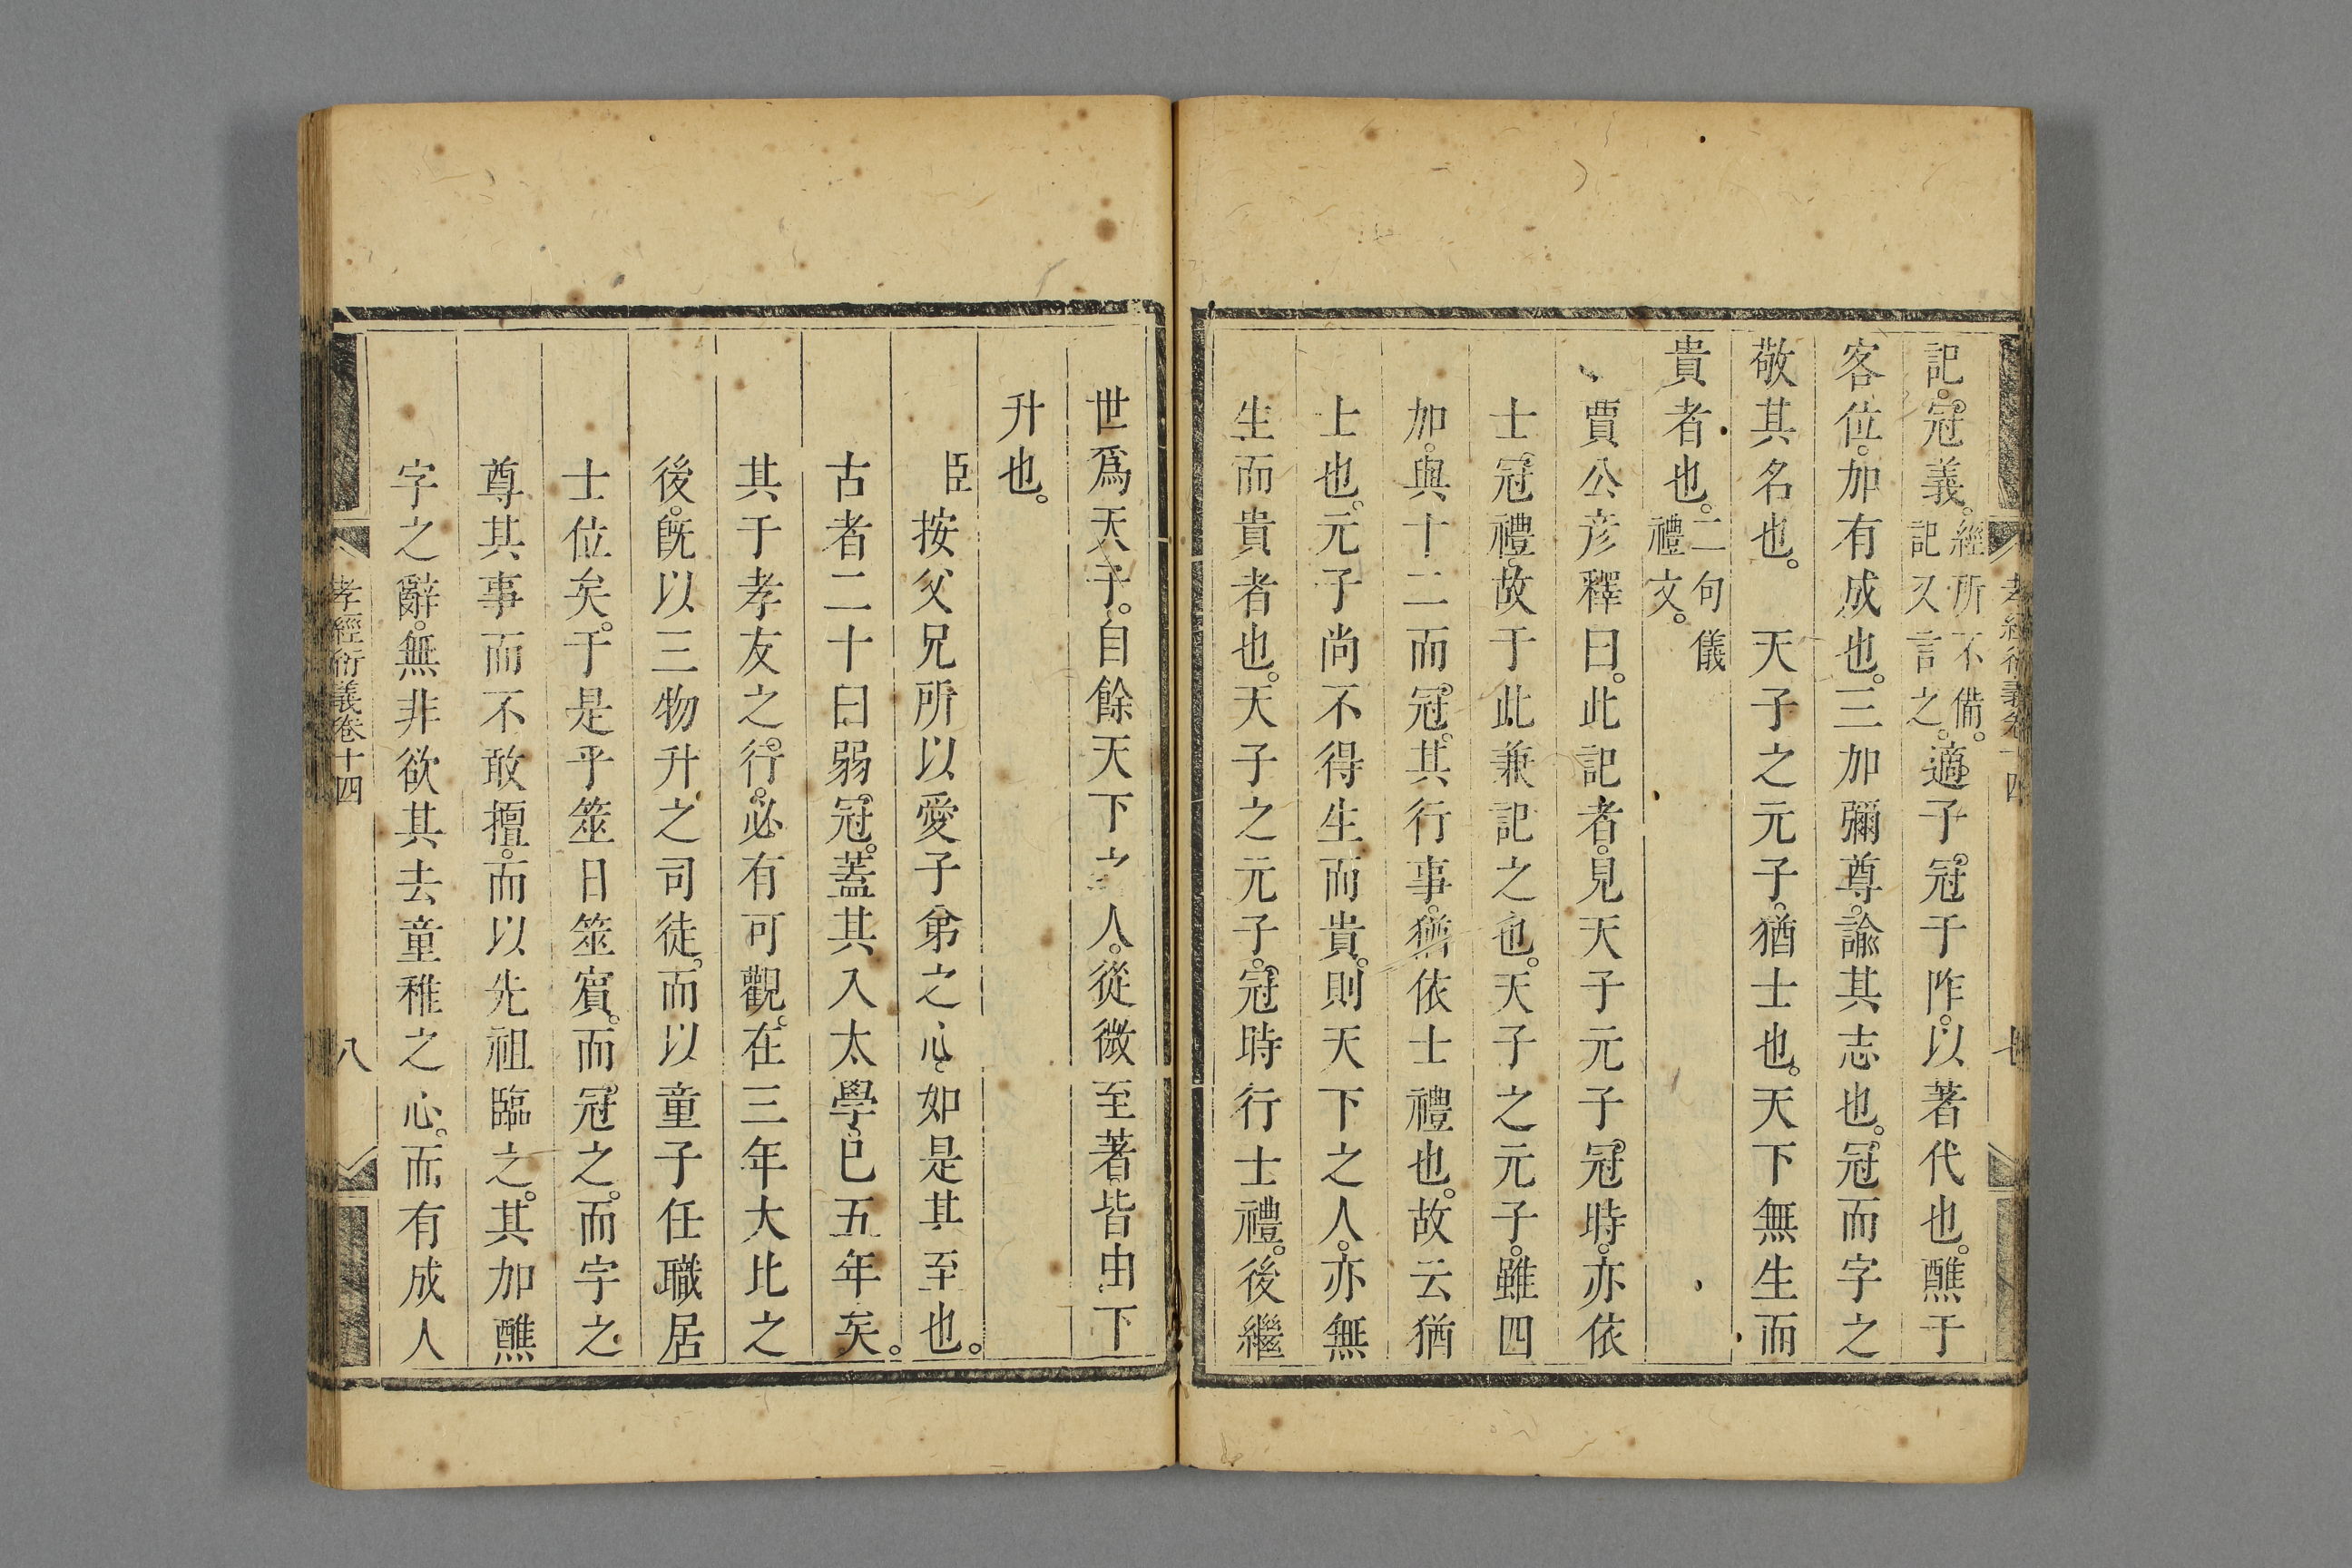 記。冠義。經所不備。記又言之。適子冠于阼。以著代也。醮于
客位。加有成也。三加彌尊。諭其志也。冠而字之
敬其名也。　天子之元子。猶士也。天下無生而
貴者也。二句儀禮文。
賈公彦釋曰。此記者。見天子元子冠時。亦依
士冠禮。故于此兼記之也。天子之元子。雖四
加。與十二而冠。其行事。猶依士禮也。故云猶
士也。元子尚不得生而貴。則天下之人。亦無
生而貴者也。天子之元子。冠時行士禮。後繼
世爲天子。自餘天下之人。從微至著。皆由下
升也。
臣按父兄所以愛子弟之心。如是其至也。
古者二十曰弱冠。蓋其入太學。已五年矣。
其于孝友之行。必有可觀。在三年大比之
後。既以三物升之司徒。而以童子任職居
士位矣。于是乎筮日筮賓。而冠之。而字之
尊其事而不敢擅。而以先祖臨之。其加醮
字之辭。無非欲其去童稚之心。而有成人
孝經衍義卷十四　八